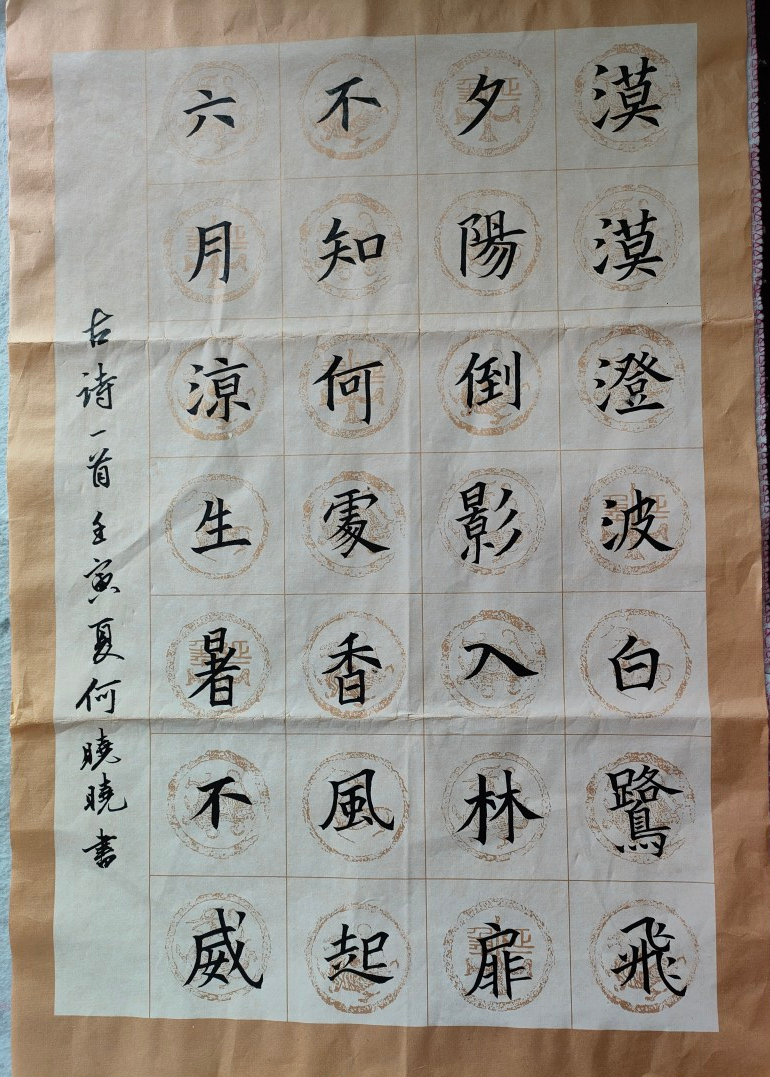 漠漠澄波白鷺飛
夕陽倒影入林扉
不知何處香風起
六月涼生暑不威
古诗一首壬寅夏何曉曉書